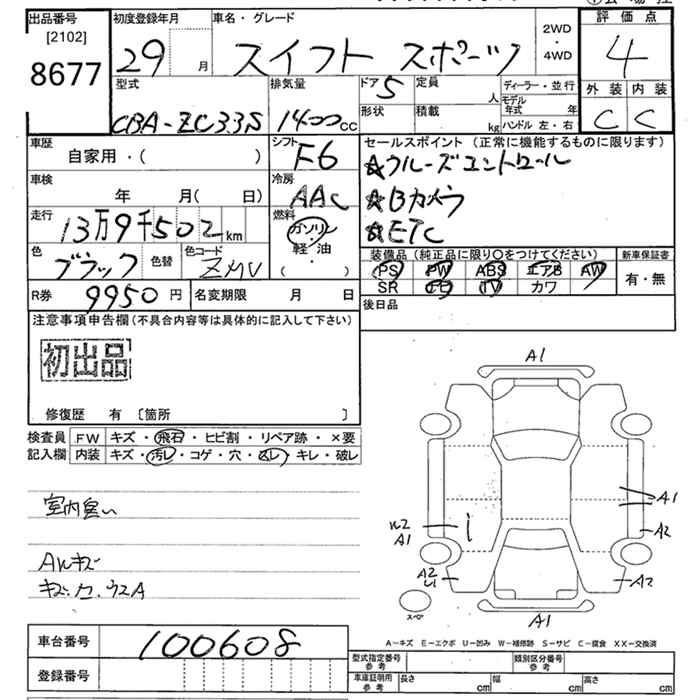 出品番号
[2102]
8677
初度登録年月
29 月
車名・グレード
スイフト スポーツ
2WD
・
4WD
評価点
4
型式
CBA-ZC33S
排気量
1400cc
ドア 5
形状
定員
人
積載
kg
ディーラー・並行
モデル年式 年
ハンドル 左・右
外装 内装
C C
車歴
自家用・( )
シフト
F6
セールスポイント (正常に機能するものに限ります)
☆クルーズコントロール
☆Bカメラ
☆ETC
車検
年 月( 日)
冷房
AAC
走行
13万9千502km
燃料
ガソリン
軽・油
( )
色
ブラック
色替
色コード
ZMV
装備品 (純正品に限り○をつけてください)
PS PW ABS エアB AW
SR TV カワ
新車保証書
有・無
R券 9950円
名変期限 月 日
後日品
注意事項申告欄(不具合内容等は具体的に記入して下さい)
初出品
修復歴 有 〔箇所 〕
検査員
記入欄
FW キズ・飛石・ヒビ割・リペア跡・×要
内装 キズ・汚レ・コゲ・穴・スレ・キレ・破レ
室内臭い
Aルキズ
A1
A1
A2
A1
A2
A2
A1
スペア
A-キズ E-エクボ U-凹み W-補修跡 S-サビ C-腐食 XX-交換済
車台番号
100608
登録番号
型式指定番号
参考
類別区分番号
参考
車庫証明用
参考
長さ cm
幅 cm
高さ cm